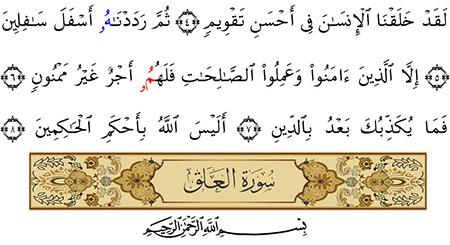 لَقَدْ خَلَقْنَا ٱلْإِنسَـٰنَ فِىٓ أَحْسَنِ تَقْوِيمٍ ﴿٤﴾ ثُمَّ رَدَدْنَـٰهُۥ أَسْفَلَ سَـٰفِلِينَ
﴿٥﴾ إِلَّا ٱلَّذِينَ ءَامَنُوا۟ وَعَمِلُوا۟ ٱلصَّـٰلِحَـٰتِ فَلَهُمُۥٓ أَجْرٌ غَيْرُ مَمْنُونٍ ﴿٦﴾
فَمَا يُكَذِّبُكَ بَعْدُ بِٱلدِّينِ ﴿٧﴾ أَلَيْسَ ٱللَّهُ بِأَحْكَمِ ٱلْحَـٰكِمِينَ ﴿٨﴾
سُورَةُ الْعَلَقِ
بِسْمِ ٱللَّهِ ٱلرَّحْمَـٰنِ ٱلرَّحِيمِ